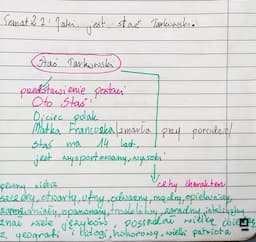 Temat 21: Jaki jest Staś Tarkowski.
Staś Tarkowski
przedstawienie postaci
Oto Staś!
Ojciec polak
Matka Francuzka/zmarła przy porodzie/
Staś ma 14 lat,
jest wysportowany, wysoki
cechy charakteru
pewny siebie
szczery, otwarty, ufny, odważny, mądry, opiekuńczy,
opanowany,
zna wiele języków, posiada wielką
z geografi i honorowy, wielki patriota